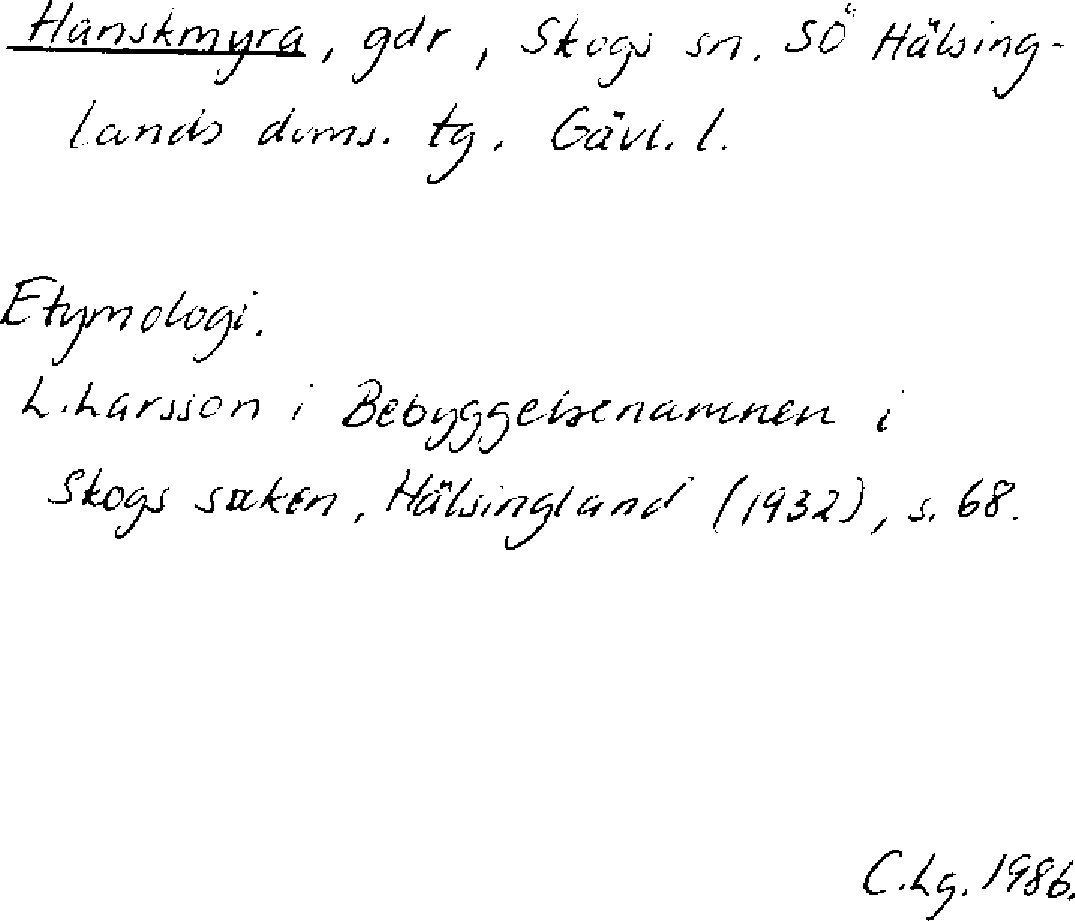 Hanskmyra, gdr, Skogs sn. SÖ Hälsing-
lands doms. tg. Gävl. l.
Etymologi.
L. Larsson i Bebyggelsenamnen i
Skogs socken, Hälsingland (1932), s. 68.
C.Lg. 1986.